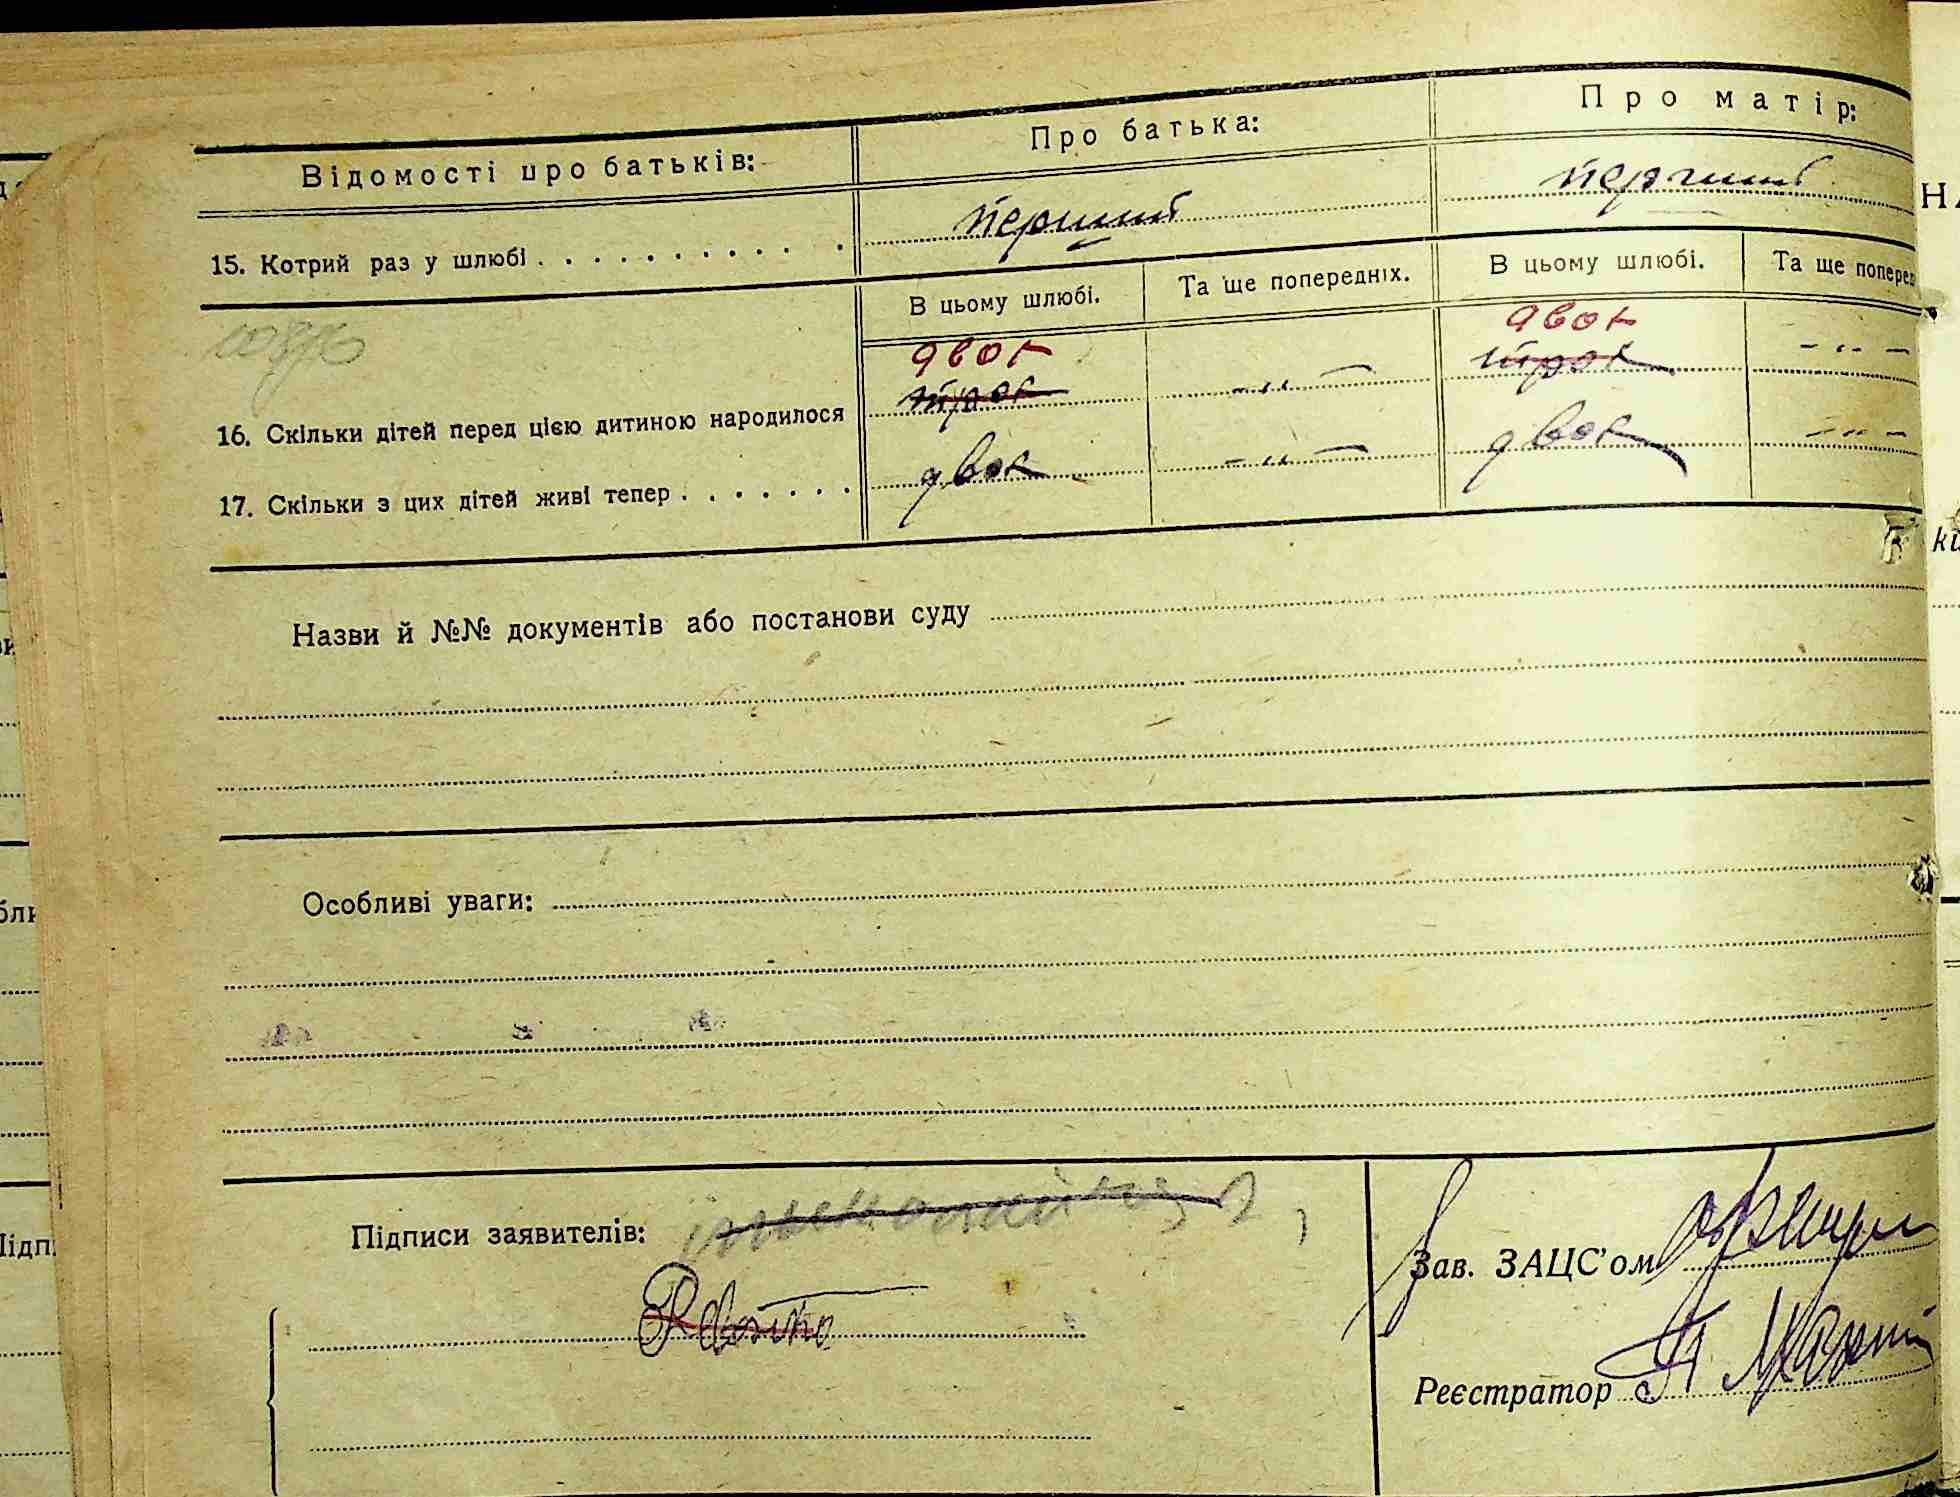 Відомості про батьків:
Про батька:
Про матір:
15. Котрий раз у шлюбі . . . . . . . . . . .
перший
перший
В цьому шлюбі.
Та ще попередніх.
В цьому шлюбі.
Та ще поперед
двох
двох
трох
- „ -
трох
- „ -
16. Скільки дітей перед цією дитиною народилося
17. Скільки з цих дітей живі тепер . . . . . . .
двох
- „ -
двох
- „ -
Назви й №№ документів або постанови суду
Особливі уваги:
Підписи заявителів:
Зав. ЗАЦС'ом
Реєстратор